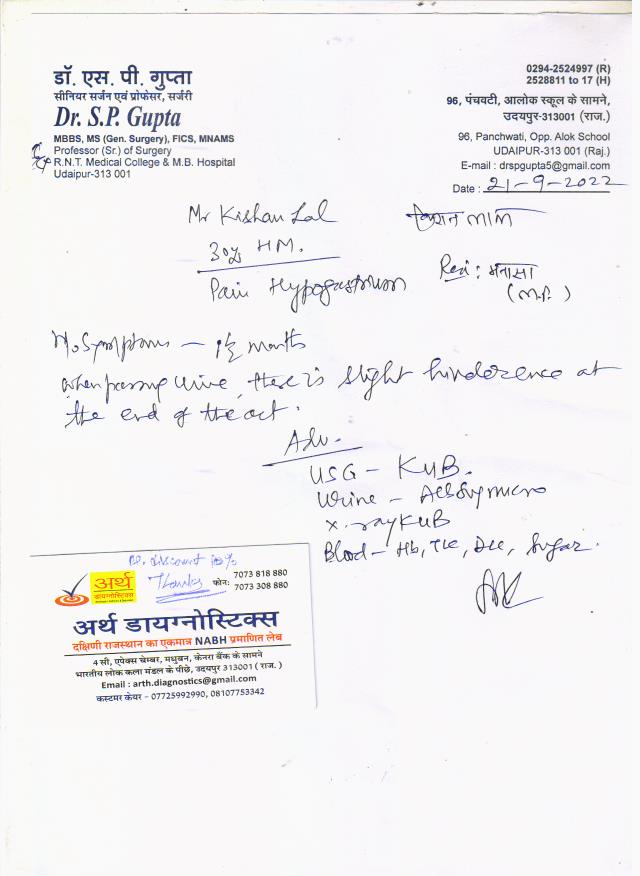 डॉ. एस. पी. गुप्ता
सीनियर सर्जन एवं प्रोफेसर, सर्जरी
Dr. S.P. Gupta
MBBS, MS (Gen. Surgery), FICS, MNAMS
Professor (Sr.) of Surgery
R.N.T. Medical College & M.B. Hospital
Udaipur-313 001
0294-2524997 (R)
2528811 to 17 (H)
96, पंचवटी, आलोक स्कूल के सामने,
उदयपुर-313001 (राज.)
96, Panchwati, Opp. Alok School
UDAIPUR-313 001 (Raj.)
E-mail : drspgupta5@gmail.com
Date : 21-9-2022
Mr Kishan Lal
किशन लाल
30y HM.
Resi : मनासा
(M.P.)
Pain Hypogastrium
Symptoms - 1½ months
when passing urine, there is slight hinderence at
the end of the act.
Adv.
USG - KUB.
Urine - micro
X. ray KUB
Blood - Hb, TLC, DLC, Sugar.
discount
Thanks
अर्थ
डायग्नोस्टिक्स
फोन: 7073 818 880
7073 308 880
अर्थ डायग्नोस्टिक्स
दक्षिणी राजस्थान का एकमात्र NABH प्रमाणित लेब
4 सी, एपेक्स चेम्बर, मधुबन, केनरा बैंक के सामने
भारतीय लोक कला मंडल के पीछे, उदयपुर 313001 ( राज. )
Email : arth.diagnostics@gmail.com
कस्टमर केयर - 07725992990, 08107753342